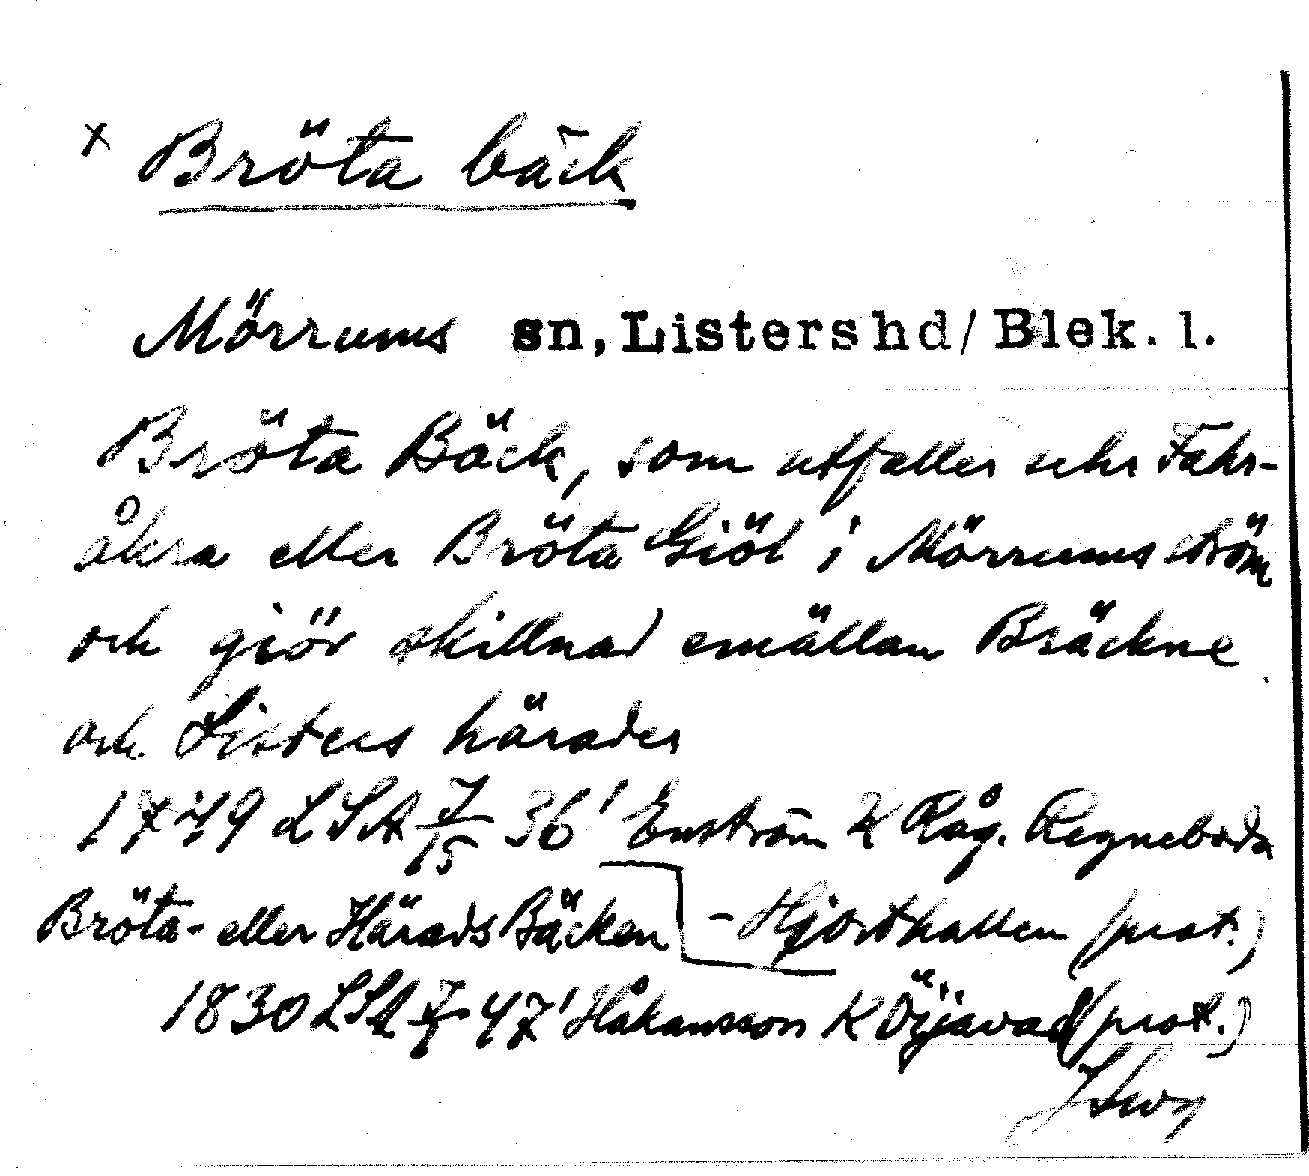 x Bröta bäck
Mörrums sn, Listers hd/Blek. l.
Bröta Bäck, som utfaller uhr Fahr-
åkra eller Bröta Giöl i Mörrums ström
och giör skillnad emällan Bräckne
och Listers härader
1749 LSA 7/15 36' Enström K Råg. Regneboda
Bröta- eller Härads Bäcken - Hjorthallen (prot.)
1830 LSA 47' Håkansson K Öijavad (prot.)